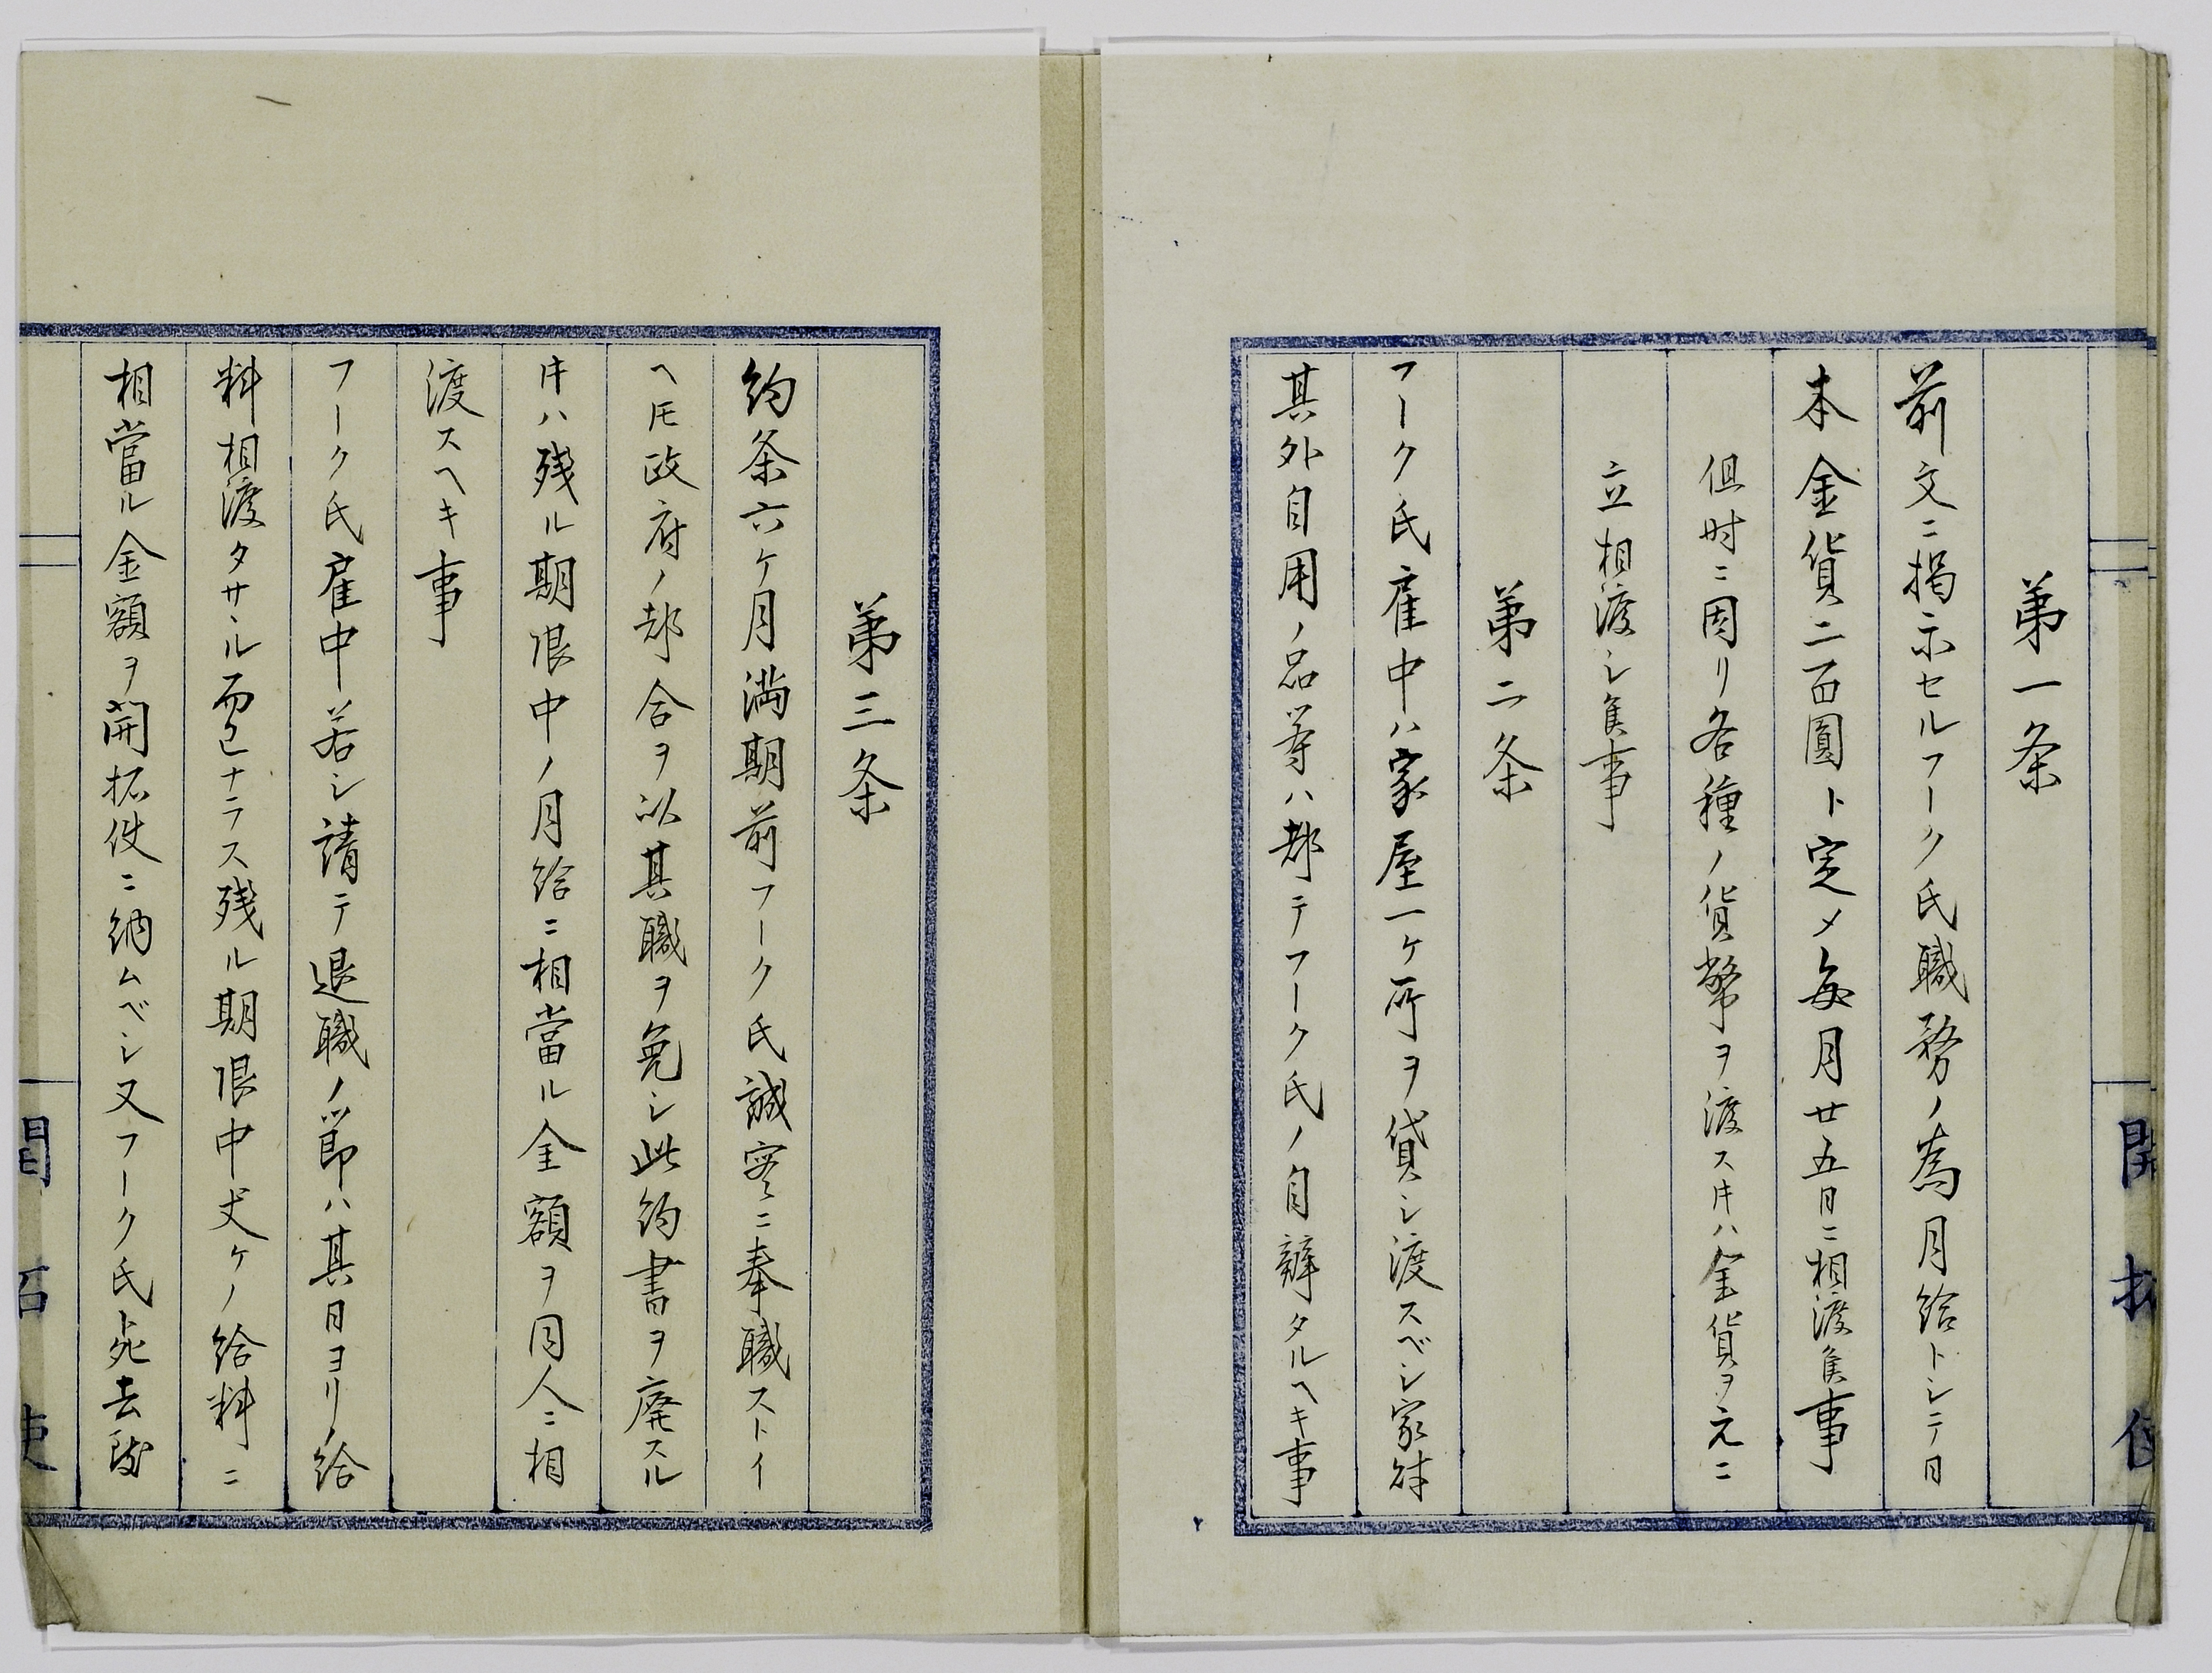 第一条
前文ニ掲示セルフーク氏職務ノ為月給トシテ日
本金貨二百圓ト定メ毎月廿五日ニ相渡候事
但时ニ因リ各種ノ貨幣ヲ渡スキハ金貨ヲ元ニ
立相渡シ候事
第二条
フーク氏雇中ハ家屋一ケ所ヲ貸シ渡スベシ家財
其外自用ノ品等ハ都テフーク氏ノ自辨タルヘキ事
第三条
約条六ケ月満期前フーク氏誠実ニ奉職ストイ
ヘ𪜈政府ノ都合ヲ以其職ヲ免シ此約書ヲ廃スル
キハ残ル期限中ノ月給ニ相當ル金額ヲ同人ニ相
渡スヘキ事
フーク氏雇中若シ請テ退職ノ節ハ其日ヨリノ給
料相渡タサル而已ナラス残ル期限中丈ケノ給料ニ
相當ル金額ヲ開拓使ニ納ムベシ又フーク氏死去致
開拓使